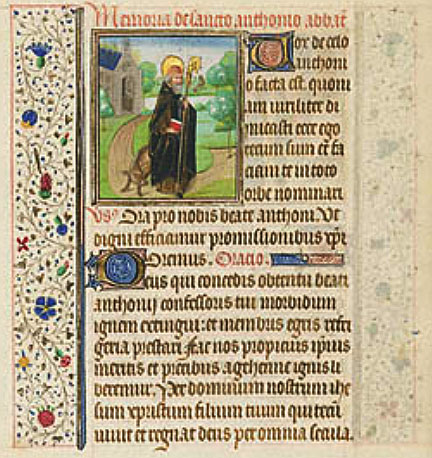 Memoria de sancto anthonio abbate
Vox de celo
anthoni
o facta est. quoni
am uiriliter di
micasti ecce ego
tecum sum et fa
ciam te in toto
orbe nominari
Vs. Ora pro nobis beate anthoni. Vt
digni efficiamur promissionibus xpi
Oremus. Oracio.
Deus qui concedis obtentu beati
anthonij confessoris tui morbidum
ignem extingui: et membris egris refri
geria prestari. fac nos propicius ipsius
meritis et precibus a gehenne ignis li
beremur. Per dominum nostrum ihe
sum xpristum filium tuum qui tecum
uiuit et regnat deus per omnia secula.